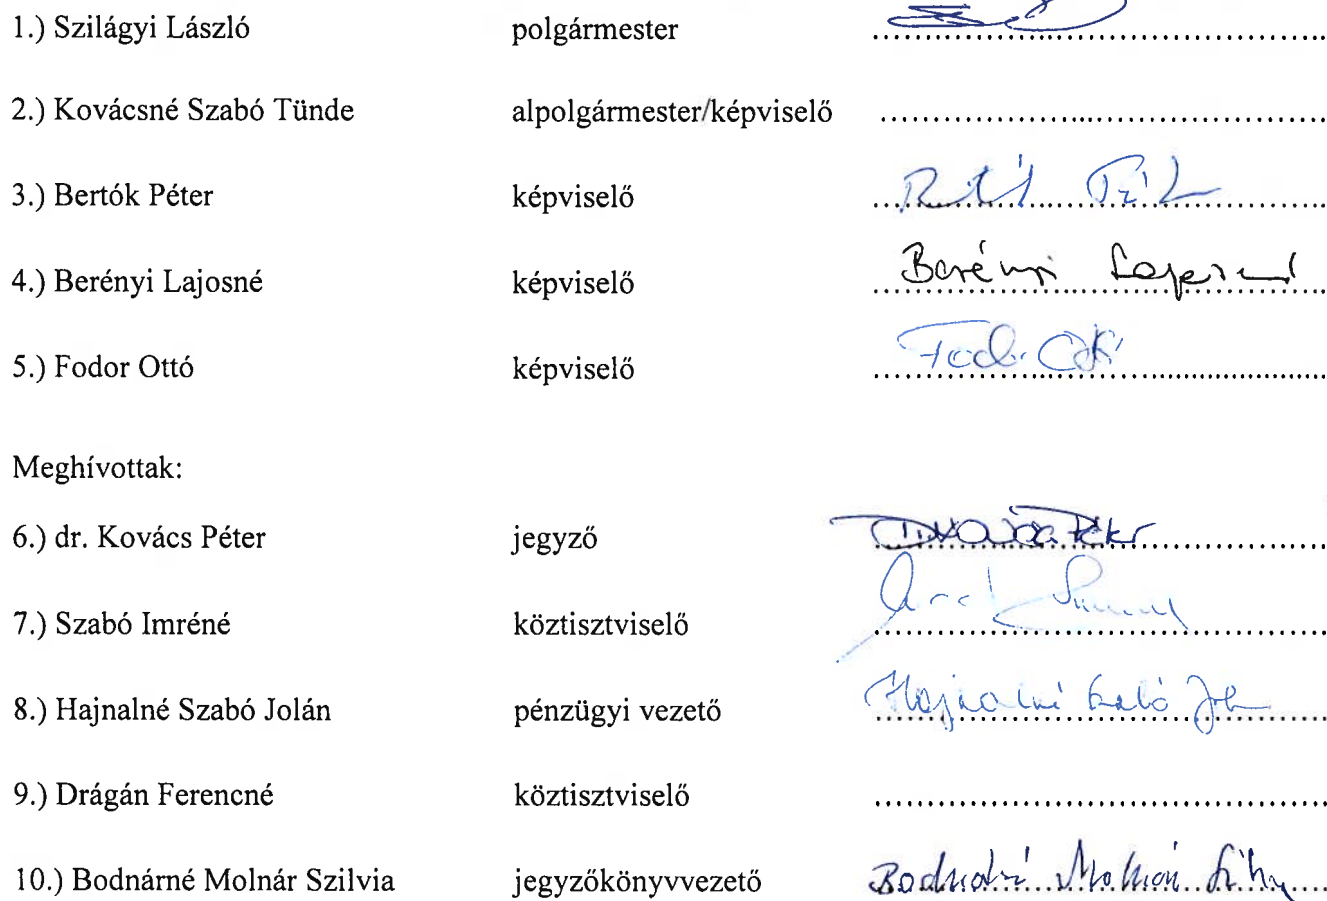 1.) Szilágyi László polgármester ........................................
2.) Kovácsné Szabó Tünde alpolgármester/képviselő ........................................
3.) Bertók Péter képviselő ........................................
4.) Berényi Lajosné képviselő Berényi Lajosné
5.) Fodor Ottó képviselő Fodor Ottó
Meghívottak:
6.) dr. Kovács Péter jegyző Dr Kovács Péter
7.) Szabó Imréné köztisztviselő ........................................
8.) Hajnalné Szabó Jolán pénzügyi vezető Hajnalné Szabó
9.) Drágán Ferencné köztisztviselő ........................................
10.) Bodnárné Molnár Szilvia jegyzőkönyvvezető Bodnárné Molnár Szilvia